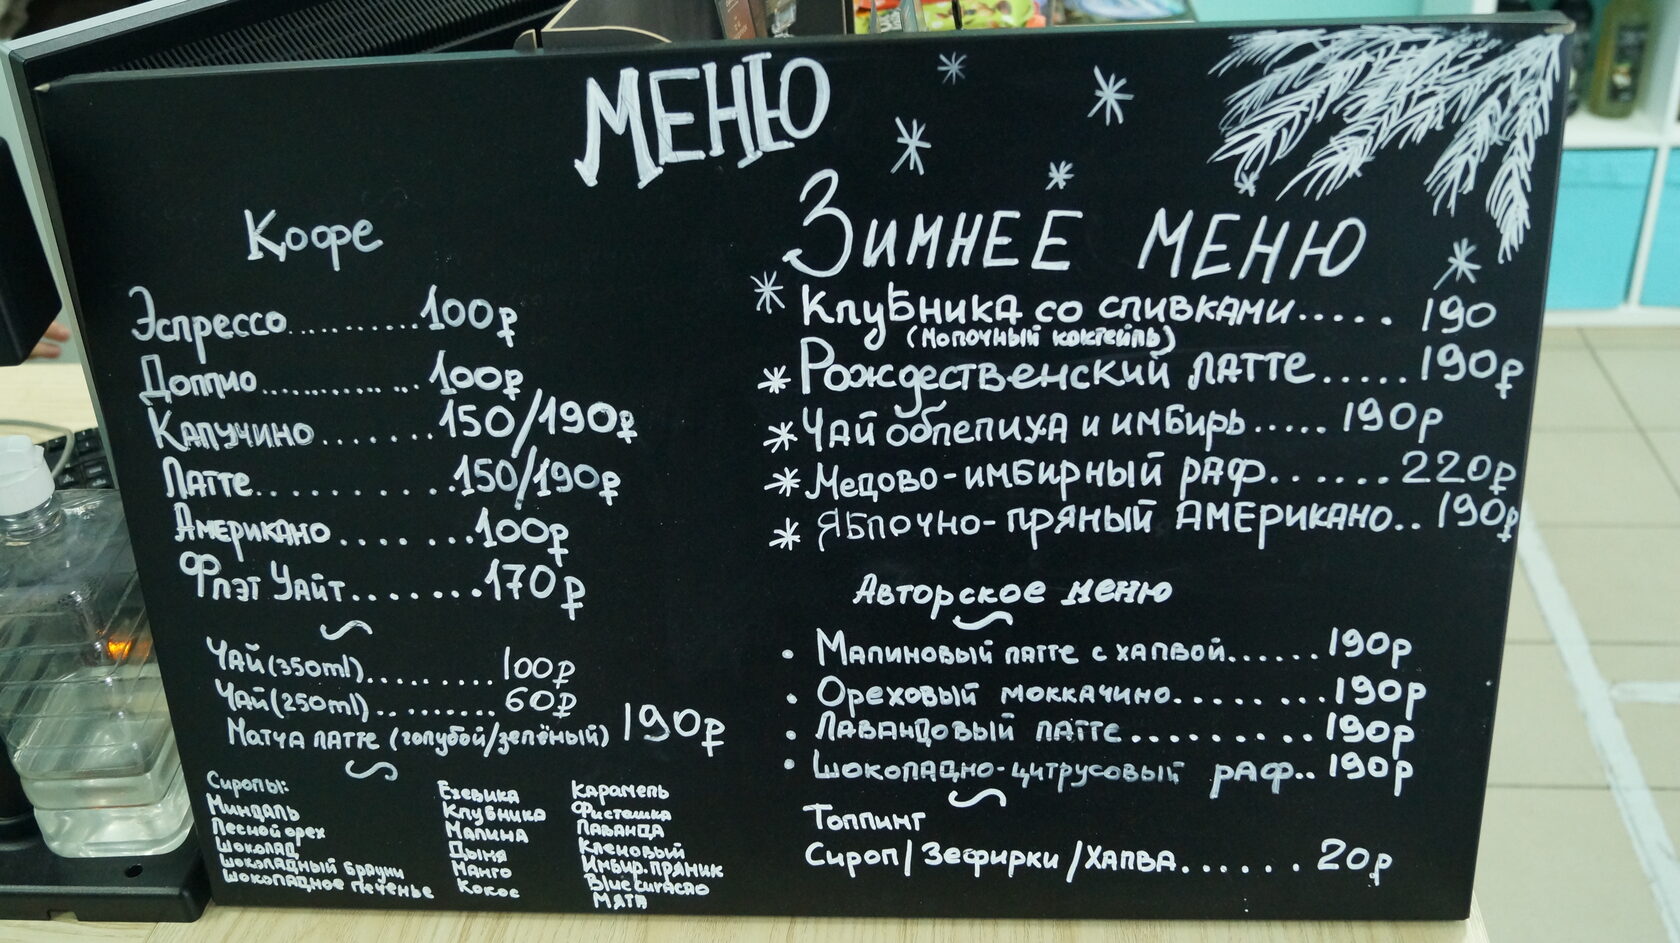 Меню
Кофе
Эспрессо..........100₽
Доппио..............100₽
Капучино.......150/190₽
Латте............150/190₽
Американо.......100₽
Флэт Уайт.......170₽
Чай(350ml).........100₽
Чай(250ml).........60₽
Матча латте (голубой/зелёный) 190₽
Сиропы:
Миндаль
Лесной орех
Шоколад
Шоколадный брауни
Шоколадное печенье
Ежевика
Клубника
Малина
Дыня
Манго
Кокос
Карамель
Фисташка
Лаванда
Кленовый
Имбир. пряник
Blue curacao
Мята
Зимнее меню
* Клубника со сливками..... 190
(молочный коктейль)
* Рождественский латте.....190₽
* Чай облепиха и имбирь.....190р
* Медово-имбирный раф......220₽
* Яблочно-пряный американо..190₽
Авторское меню
• Малиновый латте с халвой......190р
• Ореховый моккачино........190р
• Лавандовый латте.........190р
• Шоколадно-цитрусовый раф..190р
Топпинг
Сироп/Зефирки/Халва......20₽